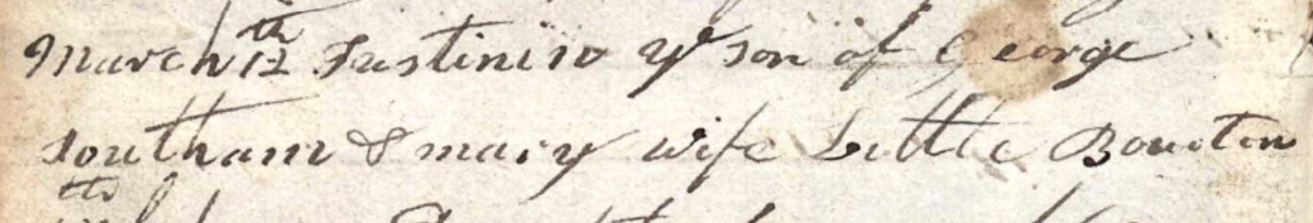 March 12th Justinin ye son of George
Southam & mary wife little Bourton